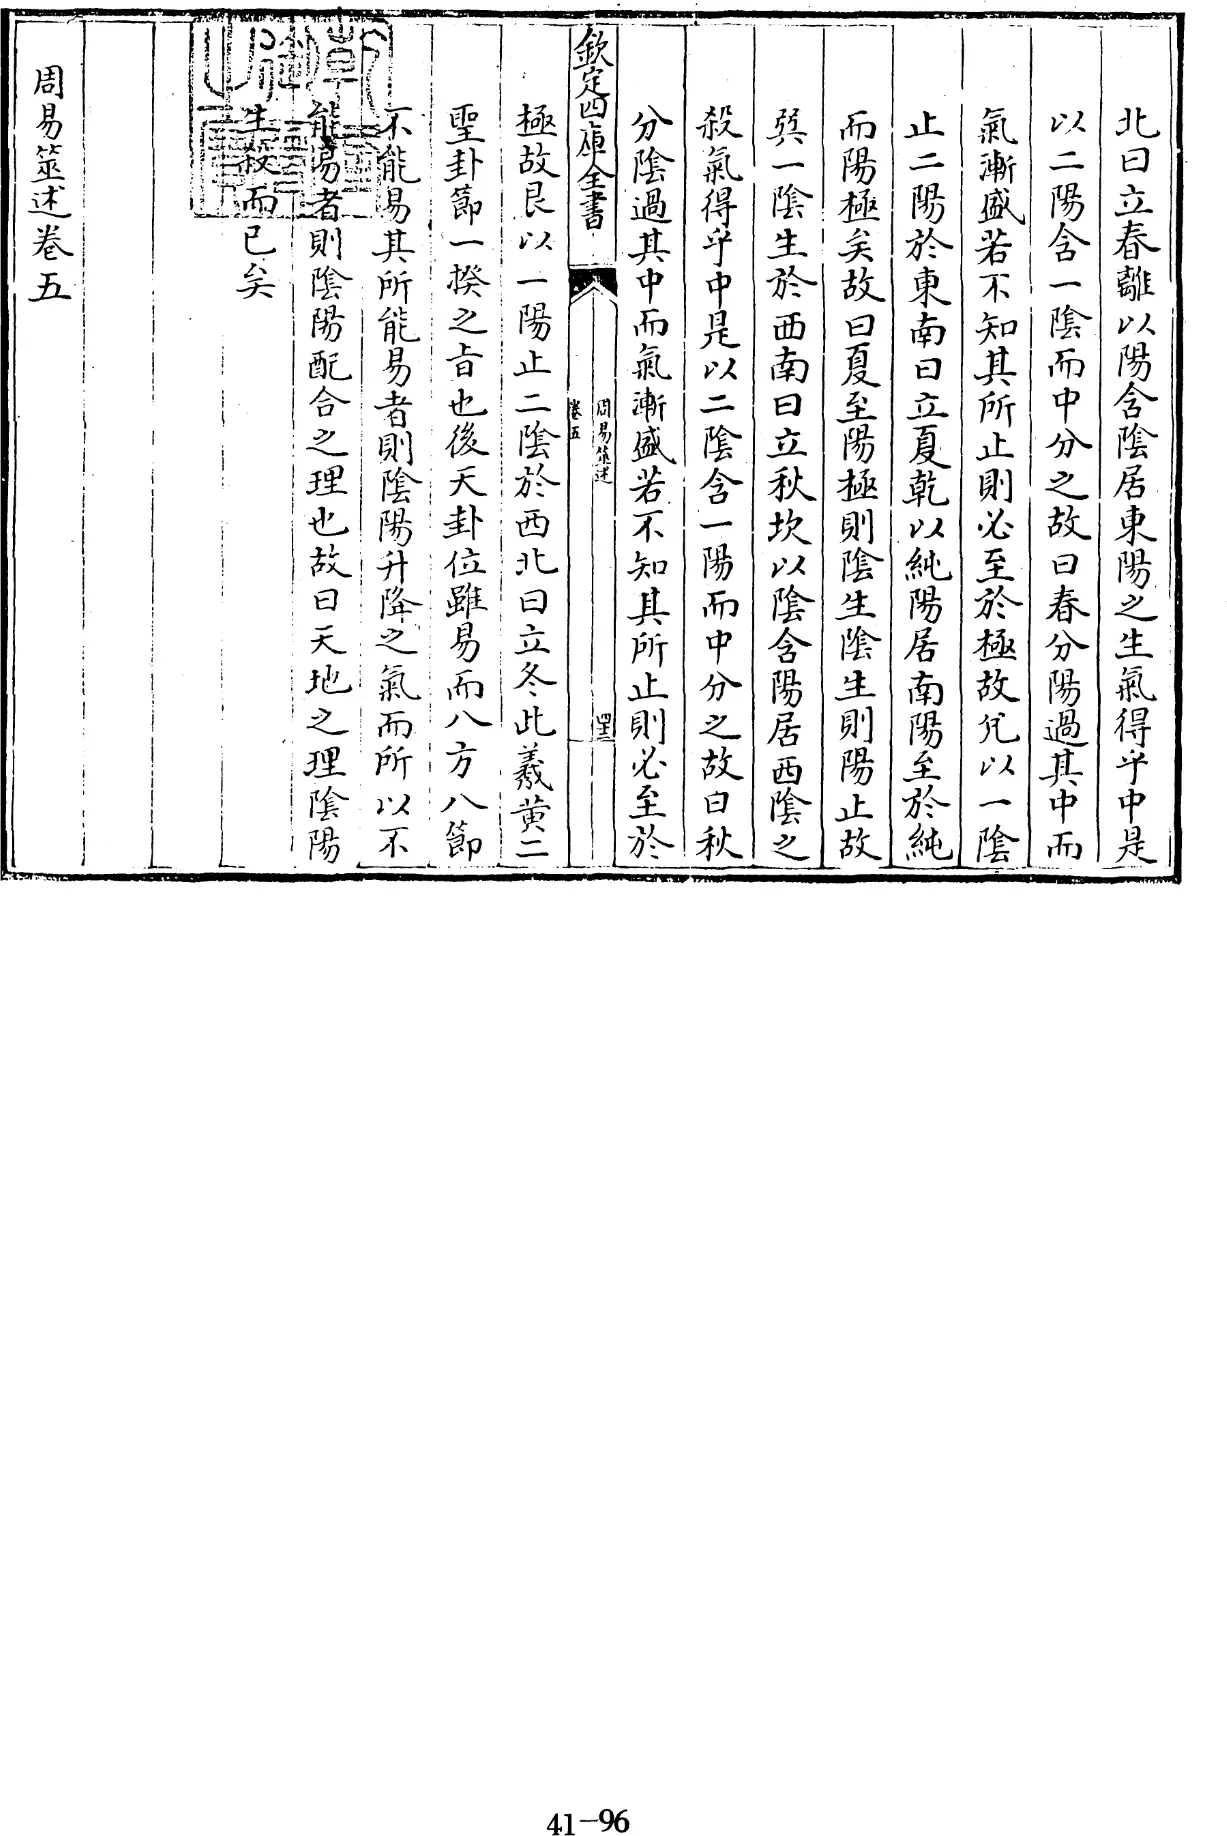 北曰立春離以陽含陰居東陽之生氣得乎中是
以二陽含一陰而中分之故曰春分陽過其中而
氣漸盛若不知其所止則必至於極故兊以一陰
止二陽於東南曰立夏乾以純陽居南陽至於純
而陽極矣故曰夏至陽極則陰生陰生則陽止故
巽一陰生於西南曰立秋坎以陰含陽居西陰之
殺氣得乎中是以二陰含一陽而中分之故曰秋
分陰過其中而氣漸盛若不知其所止則必至於
欽定四庫全書
周易筮述
卷五
極故艮以一陽止二陰於西北曰立冬此羲黄二
聖卦節一揆之㫖也後天卦位雖易而八方八節
不能易其所能易者則陰陽升降之氣而所以不
能易者則陰陽配合之理也故曰天地之理陰陽
生殺而已矣
周易筮述卷五
41-96